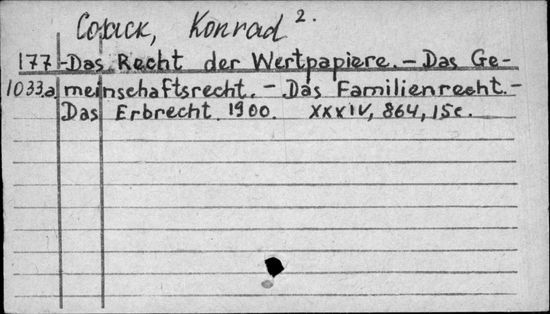 Cosack, Konrad 2.
177 -Das Recht der Wertpapiere. - Das Ge-
1033.a meinschaftsrecht. - Das Familienrecht. -
Das Erbrecht 1900. XXXIV, 864, 15c.